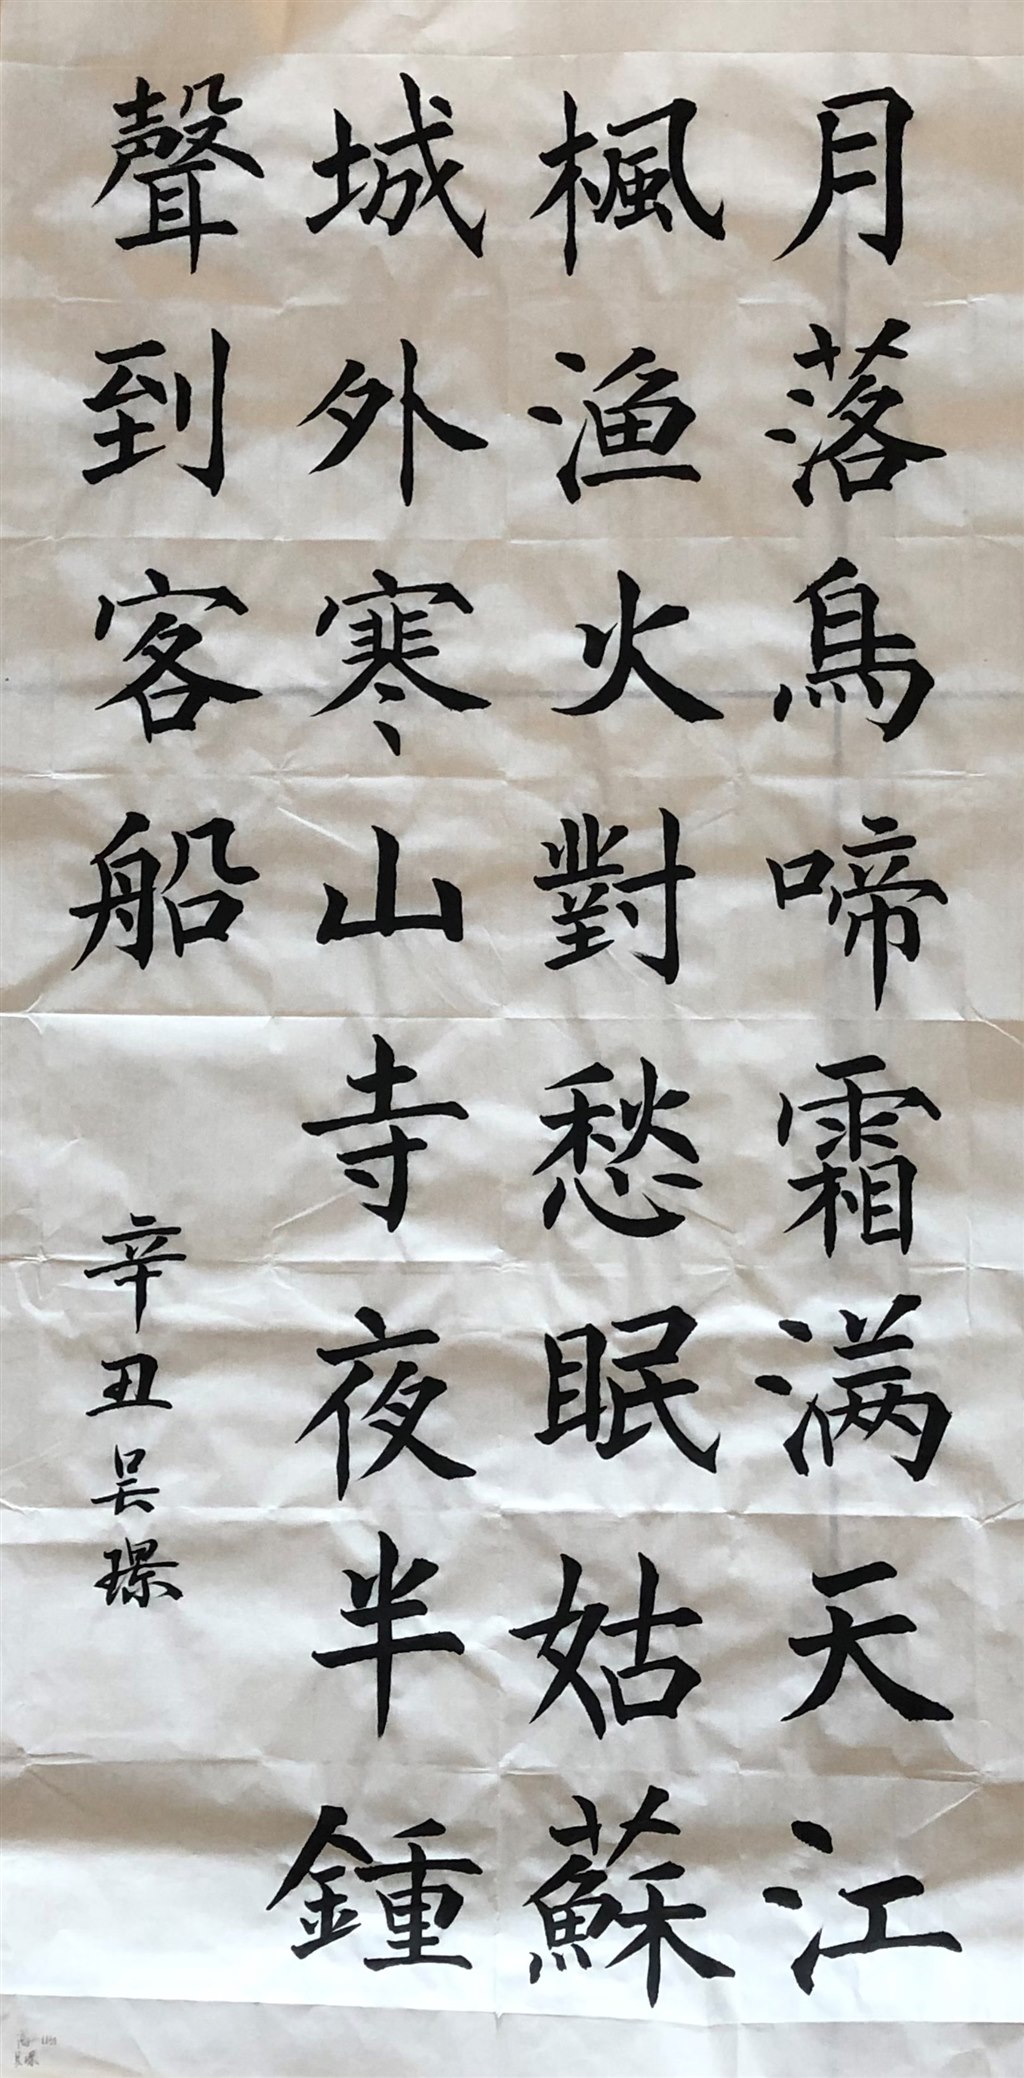 月落烏啼霜满天江
楓渔火對愁眠姑蘇
城外寒山寺夜半鍾
聲到客船
辛丑吴璟